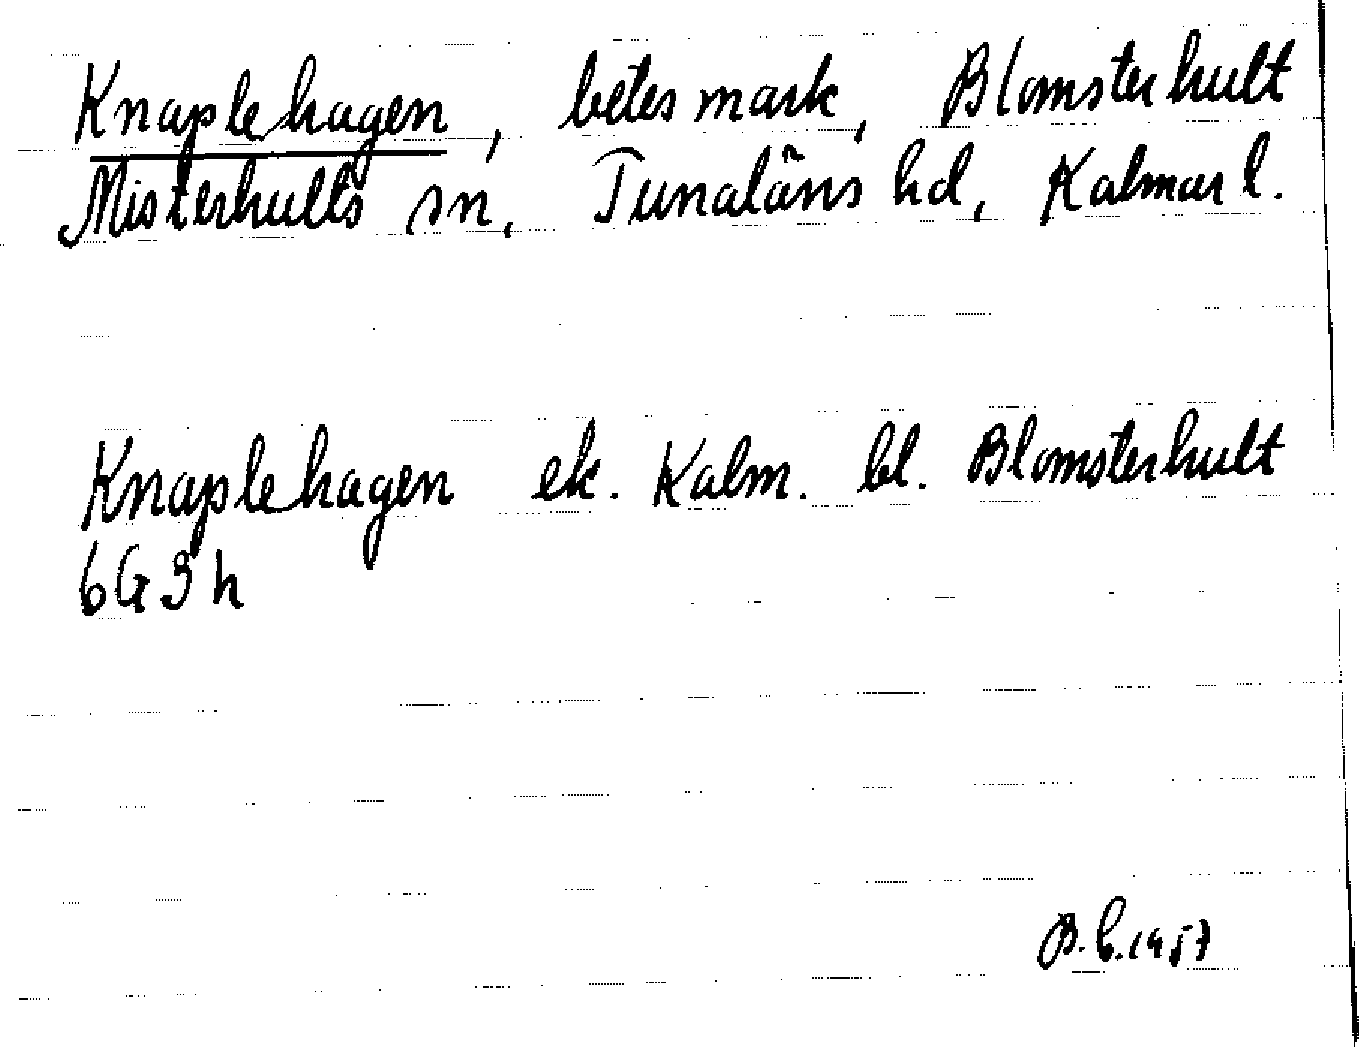 Knaplehagen, betesmark, Blomsterhult
Misterhults sn, Tunaläns hd, Kalmar l.
Knaplehagen ek. Kalm. bl. Blomsterhult
6G3h
B.L.1957